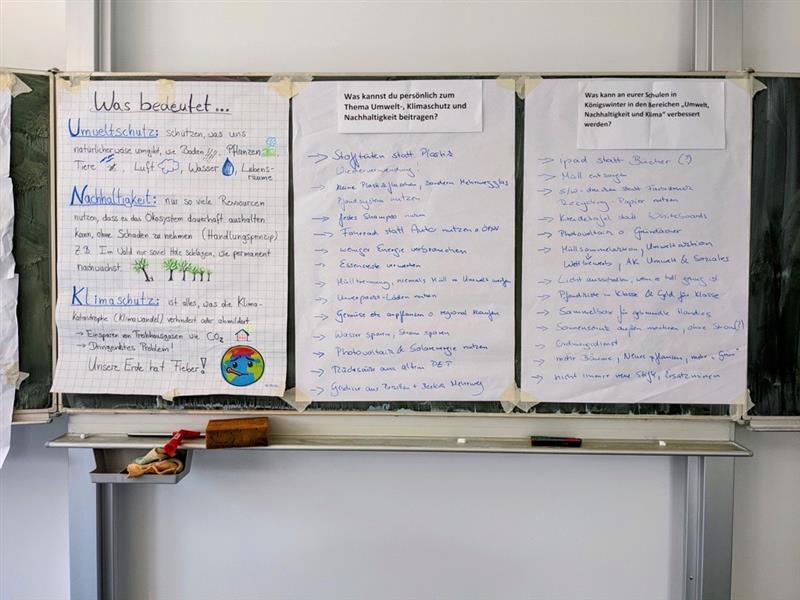 Was bedeutet...
Umweltschutz: schützen, was uns
natürlicherweise umgibt, wie Boden, Pflanzen,
Tiere, Luft, Wasser, Lebens-
räume
Nachhaltigkeit: nur so viele Ressourcen
nutzen, dass es das Ökosystem dauerhaft aushalten
kann, ohne Schaden zu nehmen (Handlungsprinzip)
Z.B. Im Wald nur soviel Holz schlagen, wie permanent
nachwächst.
Klimaschutz: ist alles, was die Klima-
katastrophe (Klimawandel) verhindert oder abmildert.
→ Einsparen von Treibhausgasen wie CO2
→ Dringendstes Problem!
Unsere Erde hat Fieber!
Was kannst du persönlich zum
Thema Umwelt-, Klimaschutz und
Nachhaltigkeit beitragen?
→ Stofftüten statt Plastik
Wiederverwendung
→ keine Plastikflaschen, sondern Mehrwegglas
Pfandsystem nutzen
→ festes Shampoo nutzen
→ Fahrrad statt Auto nutzen o. ÖPNV
→ weniger Energie verbrauchen
→ Essensreste verwerten
→ Mülltrennung, niemals Müll in Umwelt werfen
→ Unverpackt-Läden nutzen
→ Gemüse etc anpflanzen o regional kaufen
→ Wasser sparen, Strom sparen
→ Photovoltaik & Solarenergie nutzen
→ Rucksäcke aus altem PET
→ Geschirr aus + Mehrweg
Was kann an eurer Schulen in
Königswinter in den Bereichen „Umwelt,
Nachhaltigkeit und Klima“ verbessert
werden?
→ ipad statt Bücher (?)
→ Müll entsorgen
→ s/w-drucken statt
Recycling-Papier nutzen
→ Kreidetafel statt Whiteboards
→ Photovoltaik o. Gründächer
→ Müllsammelaktion, Umweltaktion
Wettbewerb, AK Umwelt & Soziales
→ Licht ausschalten, wenn es hell genug ist
→ Pfandkiste in Klasse & Geld für Klasse
→ Sammelbox für gebrauchte Handies
→ Sonnenschutz außen montieren, ohne Strom(?)
→ Ordnungsdienst
→ mehr Bäume, Neue pflanzen, mehr „Grün“
→ nicht immer neue Stifte, Ersatzminen